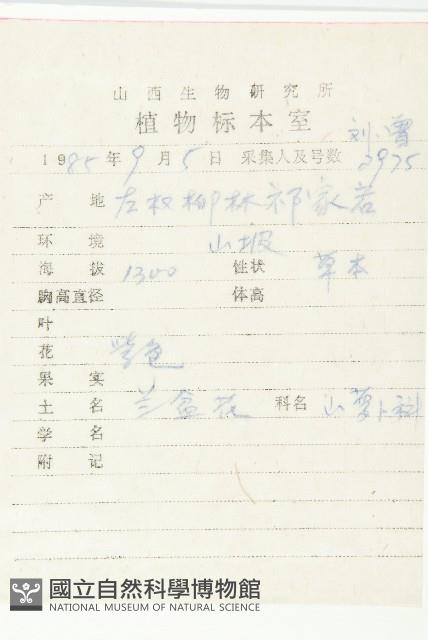 山西生物研究所
植物标本室
刘、曾
1985年9月5日 采集人及号数 2975
产地 左权柳林祁家
环境 山坡
海拔 1300 性状 草本
胸高直径 体高
叶
花 紫色
果实
土名 兰盆花 科名 山萝卜科
学名
附记
國立自然科學博物館
NATIONAL MUSEUM OF NATURAL SCIENCE